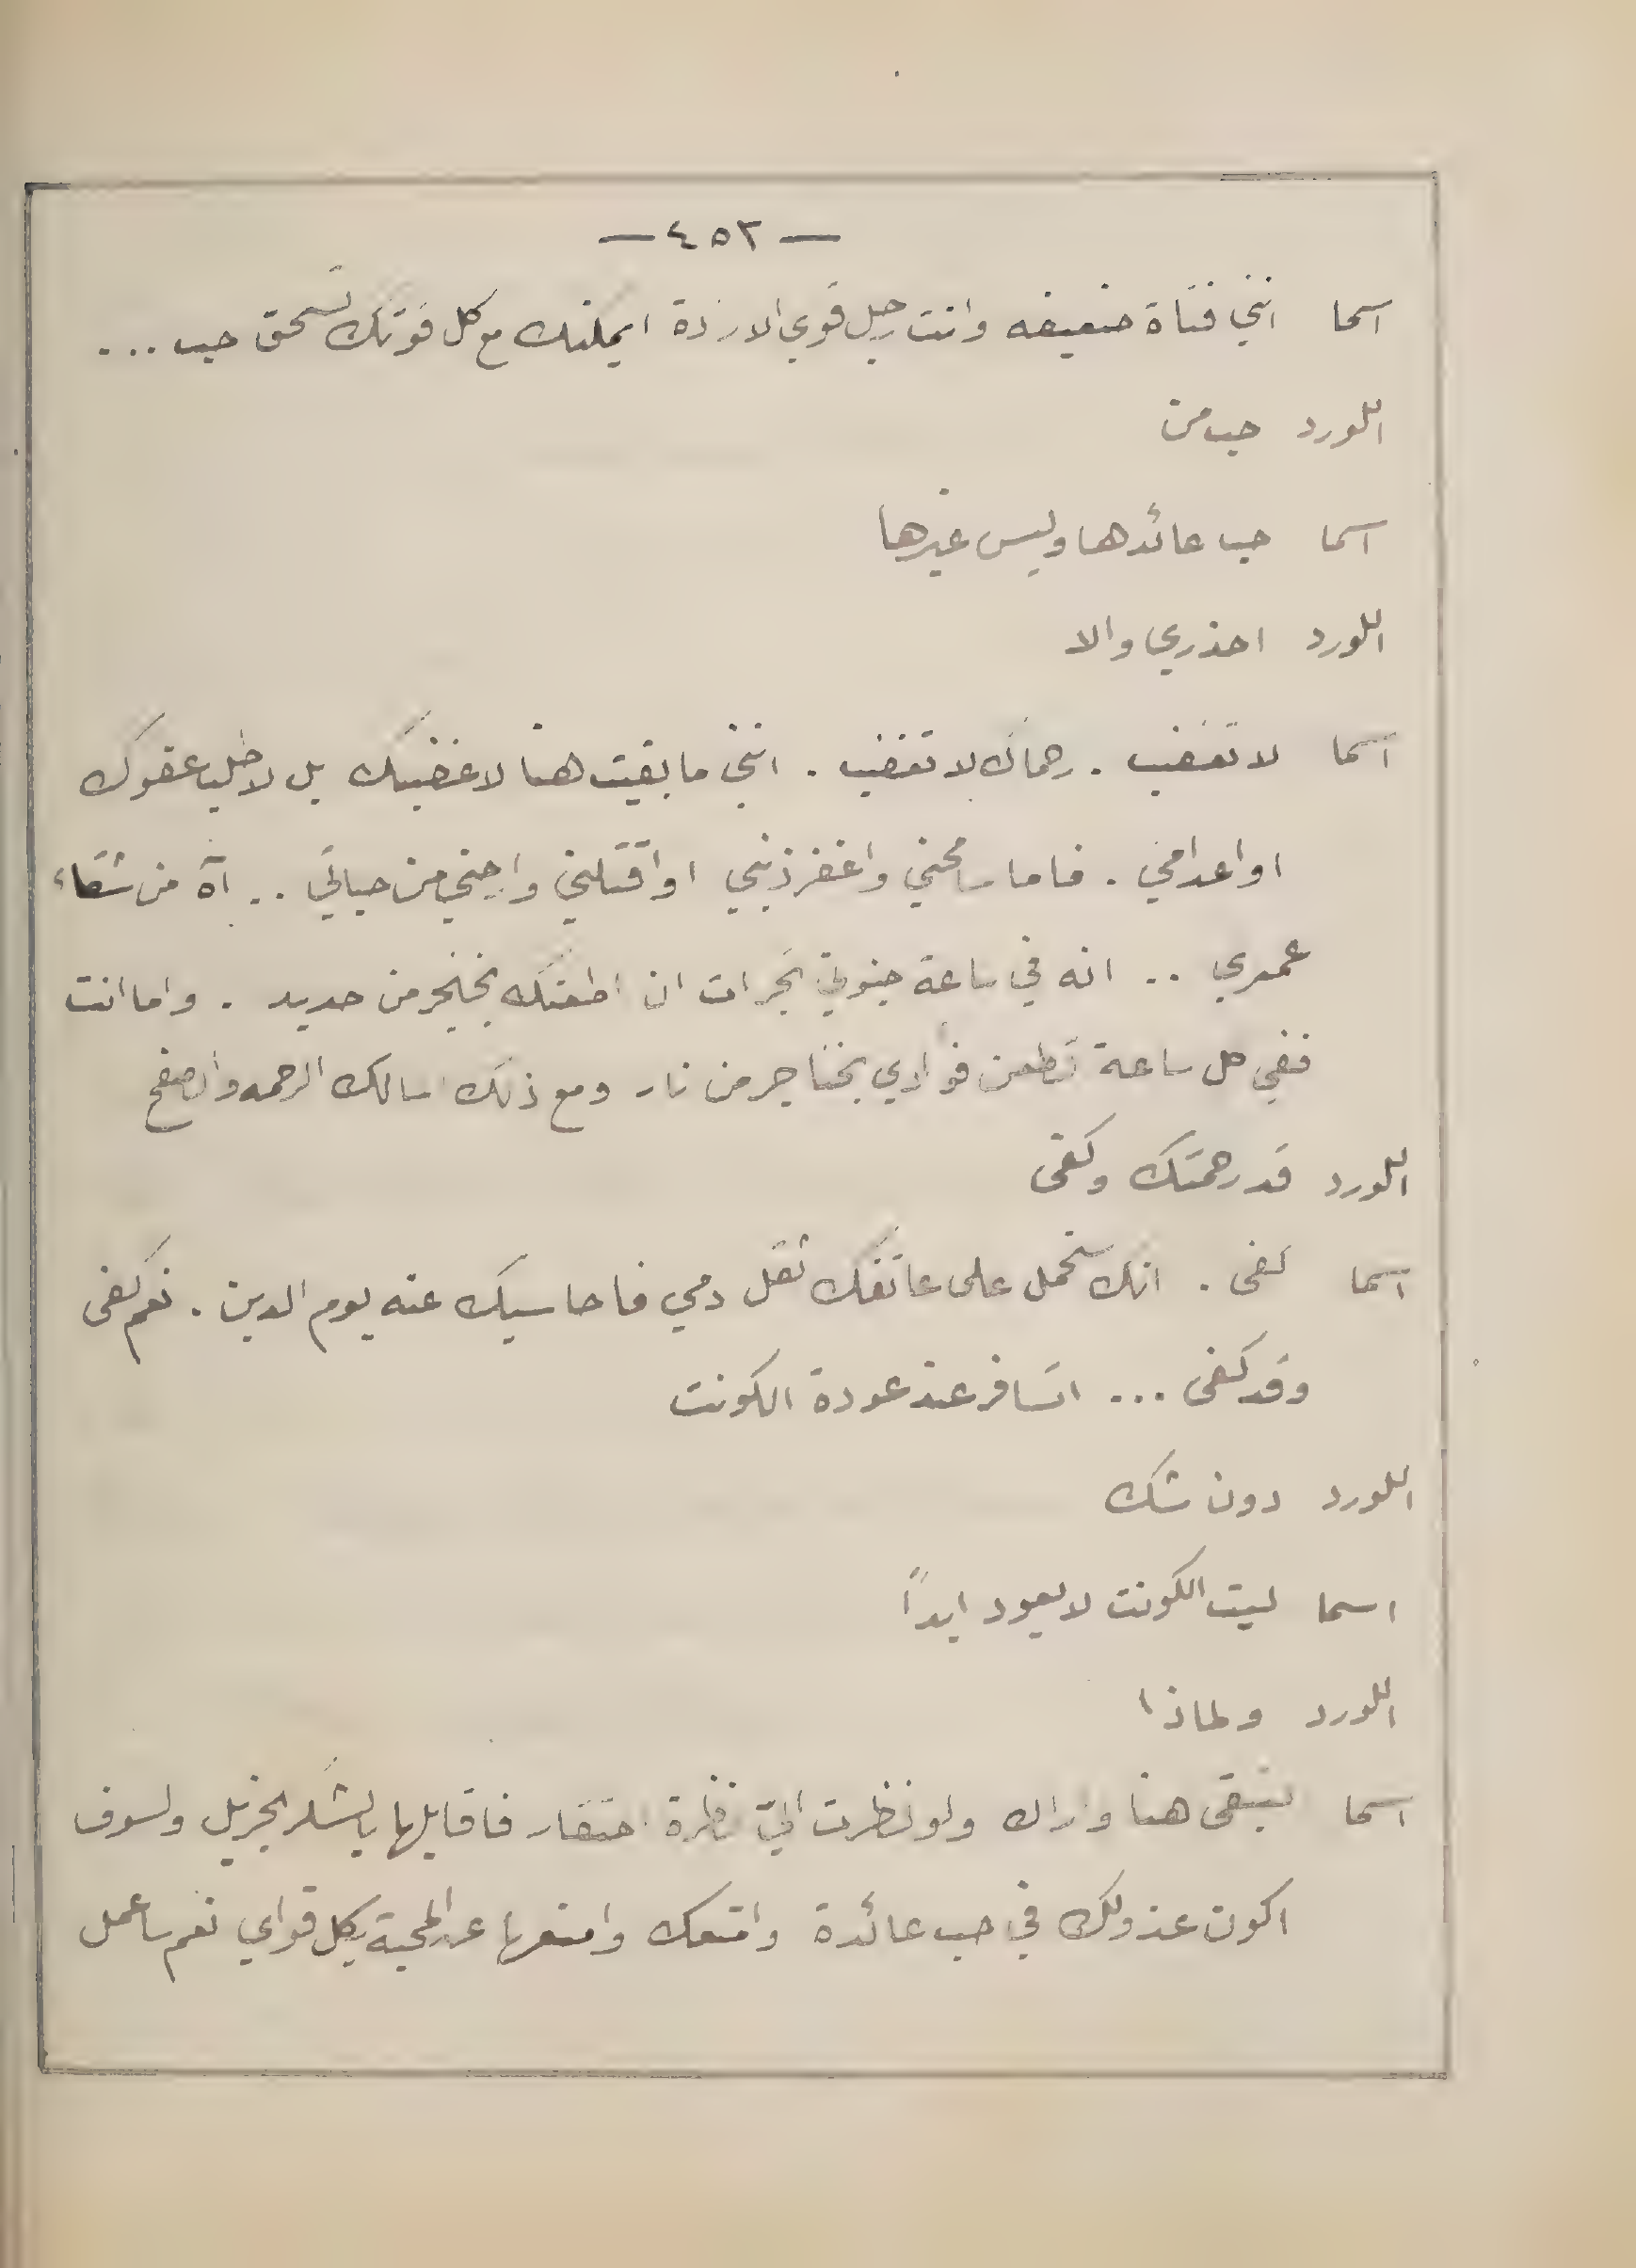 — ٤٥٣ —
اسما انني فتاة ضعيفه وانت رجل قوي الارادة ايمكنك مع كل قوتك تسحق حب ...
اللورد حب من
اسما حب عائدها وليس غيرها
اللورد احذري والا
اسما لا تغضب . رحماك لا تغضب . انني ما بقيت هنا لاغضبك بل لاطلب عفوك
او اعدامي . فاما سامحني واغفر ذنبي او اقتلني وارحني من حياتي .. آه من شقاء
عمري .. انه في ساعة جنوني تجرات ان اطعنك بخنجر من حديد . واما انت
ففي كل ساعة تطعن فوادي بخناجر من نار ومع ذلك اسالك الرحمه والصفح
اللورد قد رحمتك وكفى
اسما كفى . انك ستحمل على عاتقك ثقل دمي فاحاسبك عنه يوم الدين . نعم كفى
وقد كفى ... اتسافر عند عودة الكونت
اللورد دون شك
اسما ليت الكونت لا يعود ابداً
اللورد ولماذا
اسما لنبقى هنا واراك ولو نظرت اليّ نظرة احتقار فاقابلها بالشكر الجزيل ولسوف
اكون عذولك في حب عائدة وامنعك وامنعها عن المحبة بكل قواي نعم ساعمل